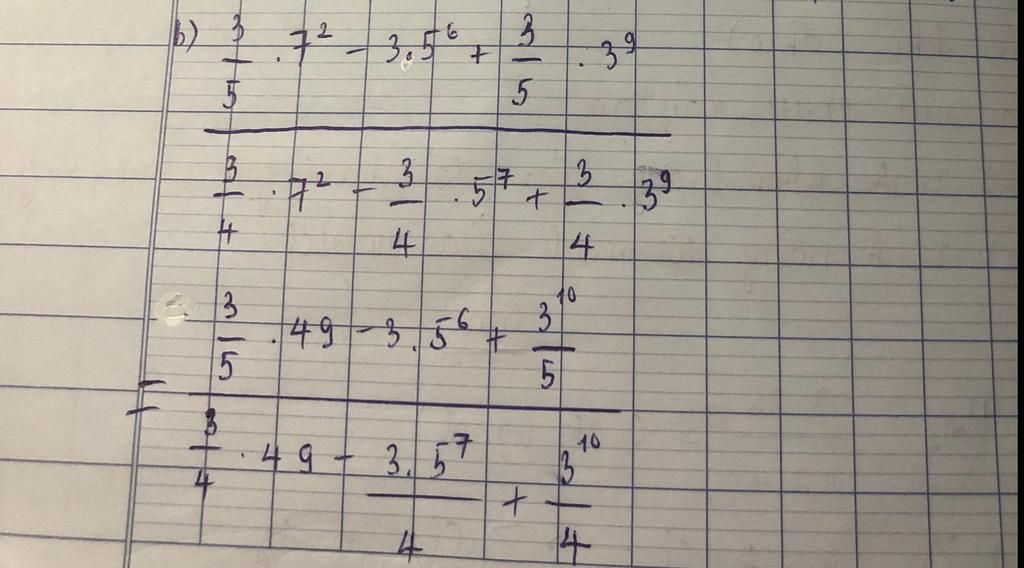 b) 3/5 . 7² - 3.5⁶ + 3/5 . 3⁹
3/4 . 7² - 3/4 . 5⁷ + 3/4 . 3⁹
3/5 . 49 - 3. 5⁶ + 3¹⁰/5
=
3/4 . 49 - 3. 5⁷/4 + 3¹⁰/4